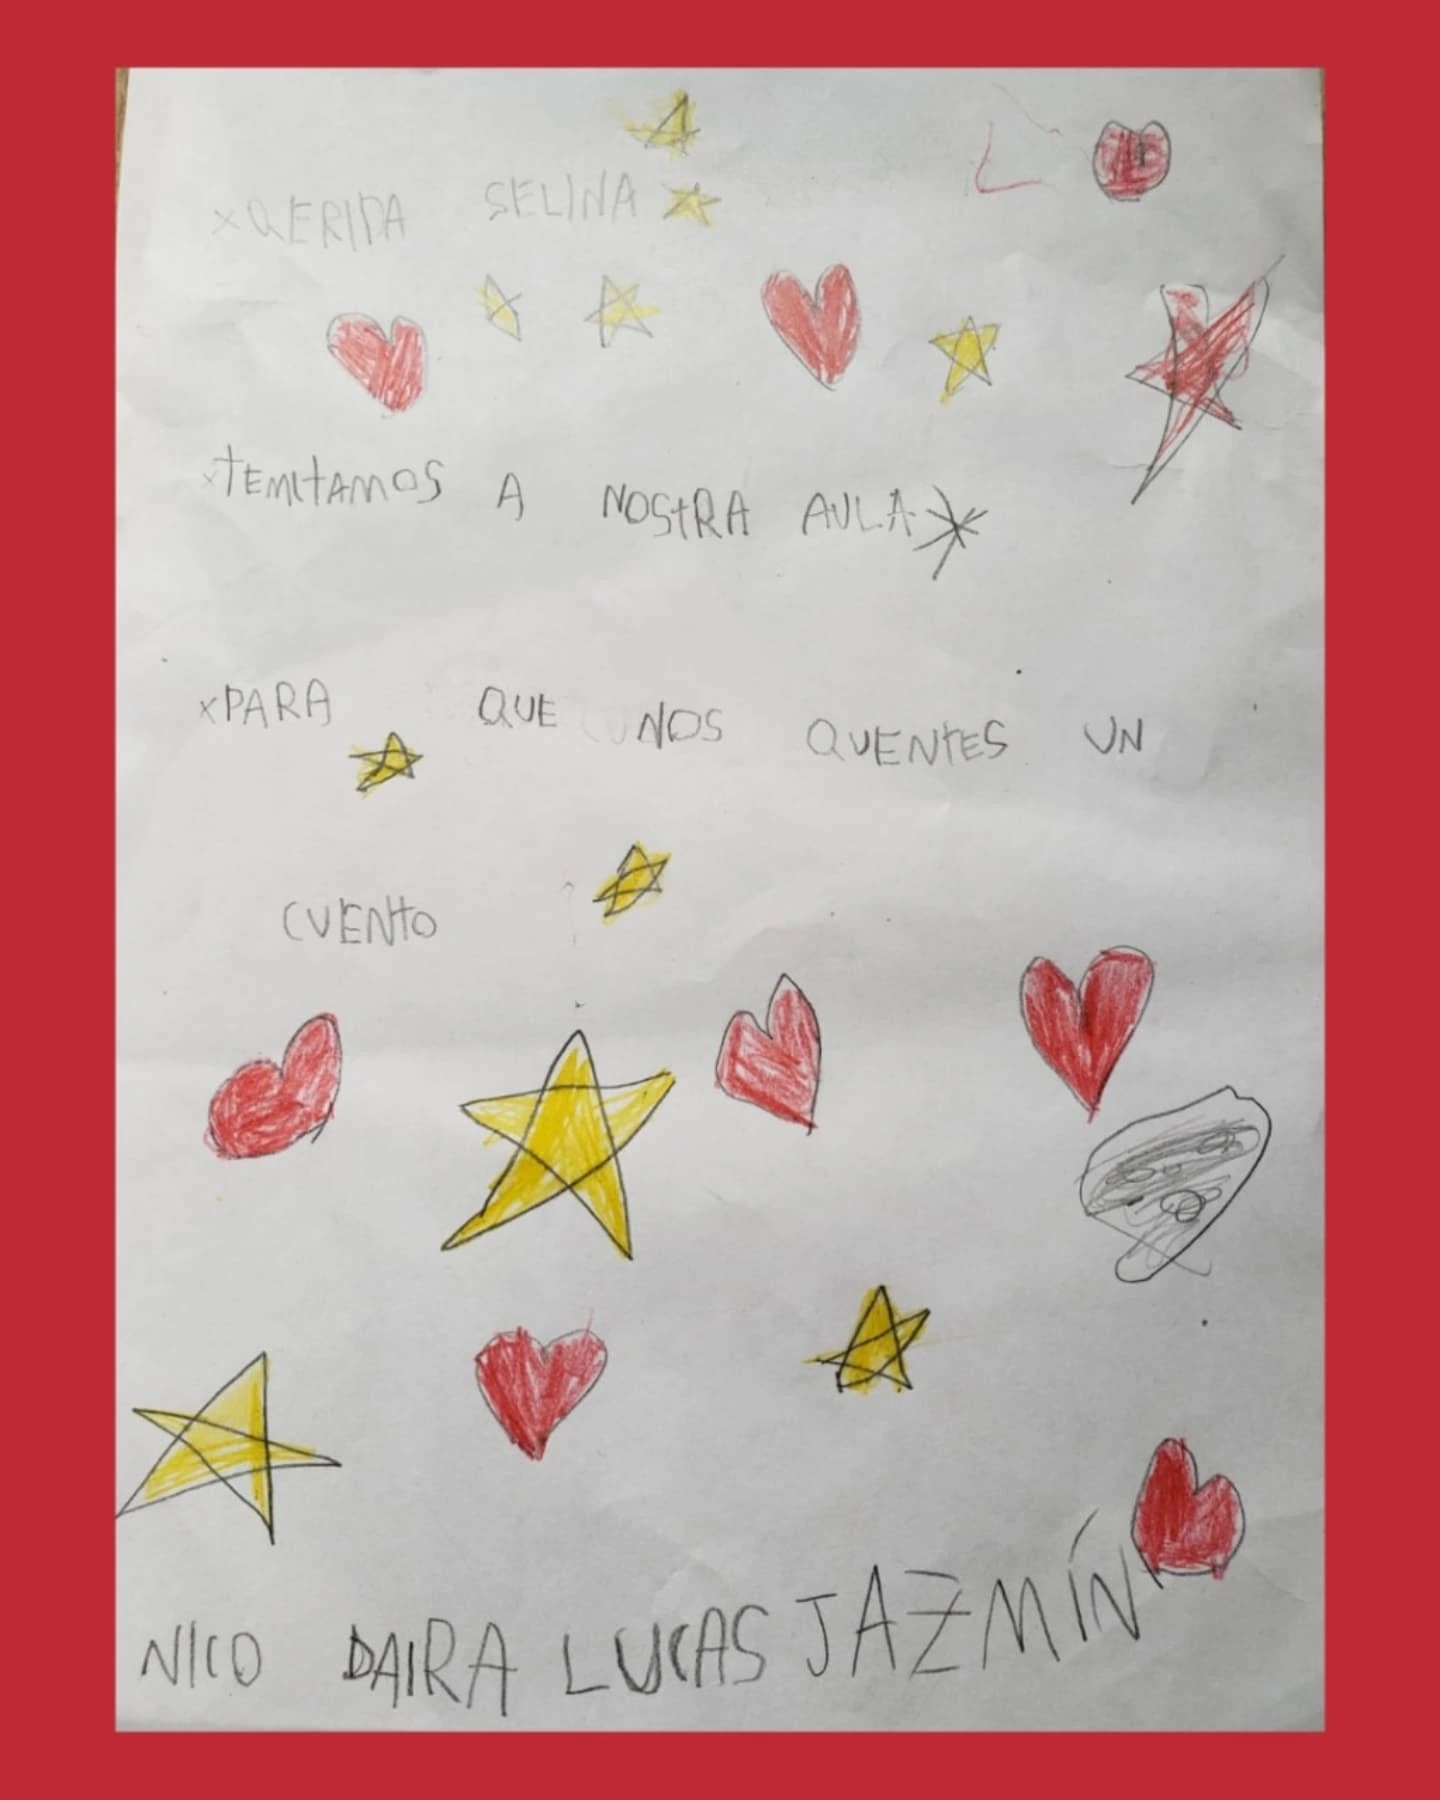 xQERIDA SELINA
xTEMITAMOS A NOSTRA AULA
xPARA QUE NOS QUENTES UN
CUENTO
NICO DAIRA LUCAS JAZMÍN